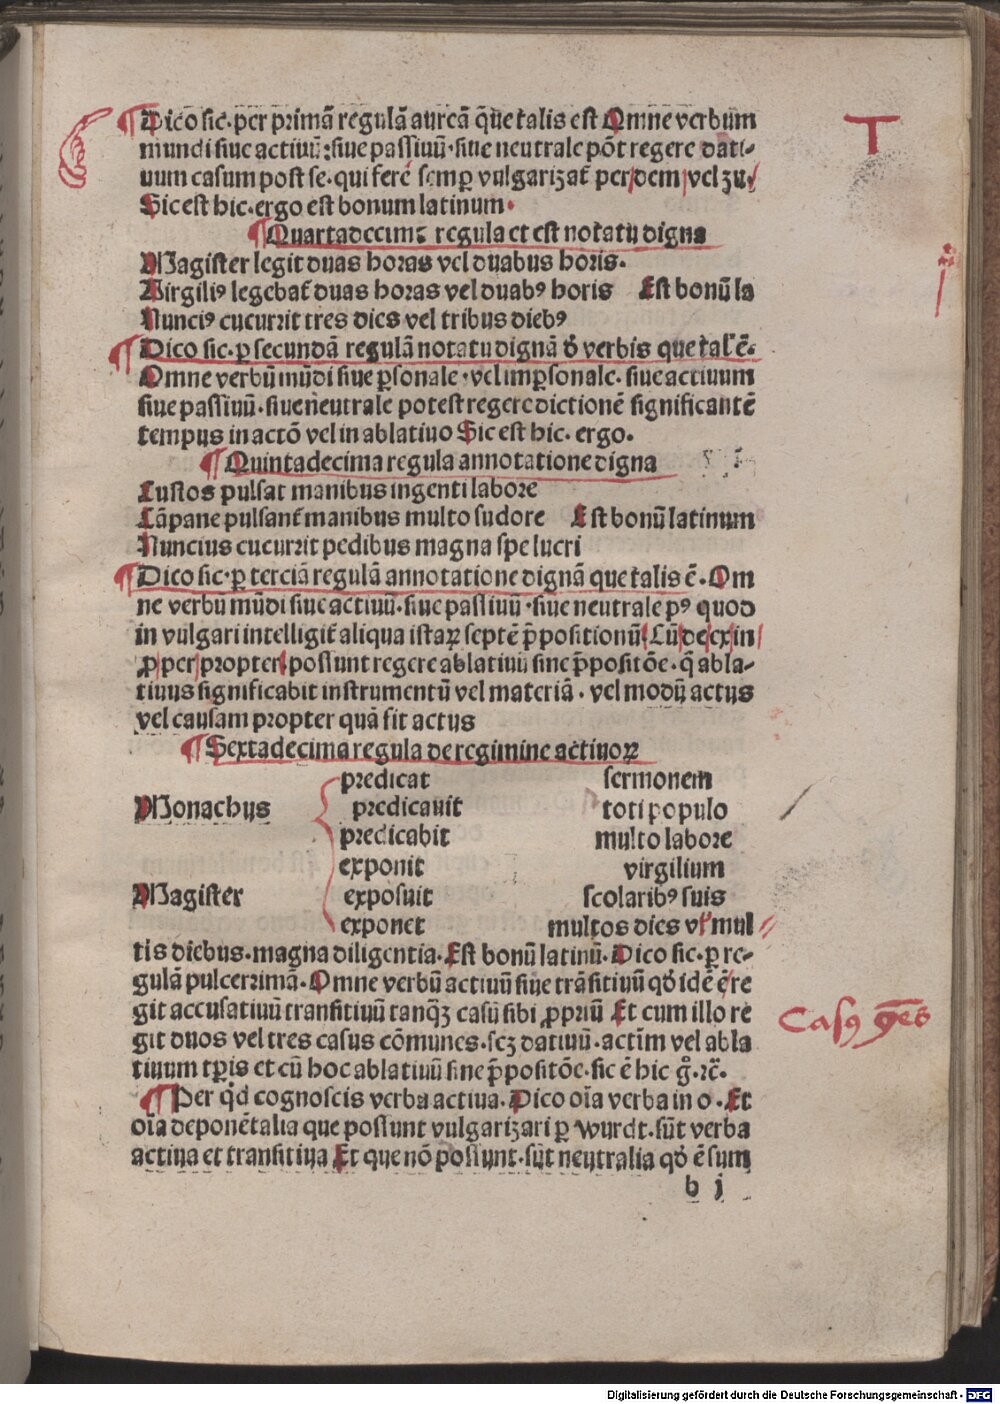 T
Dico sic·per primã regulã aureã q̃ue talis est Omne verbum
mundi siue actiuũ:siue passiuũ·siue neutrale põt regere dati-
uum casum post se·qui ferẽ semꝑ vulgarizat̃ per dem vel zu·
Sic est hic·ergo est bonum latinum·
¶ Quartadecima regula et est notatu digna
Magister legit duas horas vel duabus horis·
Virgiliꝰ legebat̃ duas horas vel duabꝰ horis Est bonũ la
Nunciꝰ cucurrit tres dies vel tribus diebꝰ
¶ Dico sic·ꝑ secundã regulã notatu dignã de verbis que tal' ẽ·
Omne verbũ mũdi siue ꝑsonale·vel imꝑsonale·siue actiuum
siue passiuũ·siue neutrale potest regere dictionẽ significantẽ
tempus in actõ vel in ablatiuo Sic est hic·ergo·
¶ Quintadecima regula annotatione digna
Custos pulsat manibus ingenti labore
Cãpane pulsant̃ manibus multo sudore Est bonũ latinum
Nuncius cucurrit pedibus magna spe lucri
¶ Dico sic·ꝑ terciã regulã annotatione dignã que talis ẽ·Om
ne verbũ mũdi siue actiuũ·siue passiuũ·siue neutrale pꝰ quod
in vulgari intelligit̃ aliqua istaꝝ septẽ p̃positionũ Cũ de ex in
ꝓ per propter possunt regere ablatiuũ sine p̃positõe·q̃ abla-
tiuus significabit instrumentũ vel materiã·vel modũ actus
vel causam propter quã fit actus
¶ Sextadecima regula de regimine actiuoꝝ
predicat sermonem
Monachus predicauit toti populo
predicabit multo labore
exponit virgilium
Magister exposuit scolaribꝰ suis
exponet multos dies vl' mul
tis diebus·magna diligentia·Est bonũ latinũ·Dico sic·ꝑ re-
gulã pulcerrimã·Omne verbũ actiuũ siue trãsitiuũ qď idẽ ẽ re
git accusatiuũ transitiuũ tanq̃ꝫ casũ sibi ꝓpriũ Et cum illo re
git duos vel tres casus cõmunes·scꝫ datiuũ·actĩm vel abla
tiuum tꝑis et cũ hoc ablatiuũ sine p̃positõe·sic ẽ hic g̊·rc̃·
Casꝰ ꝯ̃es
¶ Per qd̃ cognoscis verba actiua·Dico oĩa verba in o·Et
oĩa deponẽtalia que possunt vulgarizari ꝑ wurdt·sũt verba
actiua et transitiua Et que nõ possunt·sũt neutralia qď ẽ sum
b j
Digitalisierung gefördert durch die Deutsche Forschungsgemeinschaft - DFG